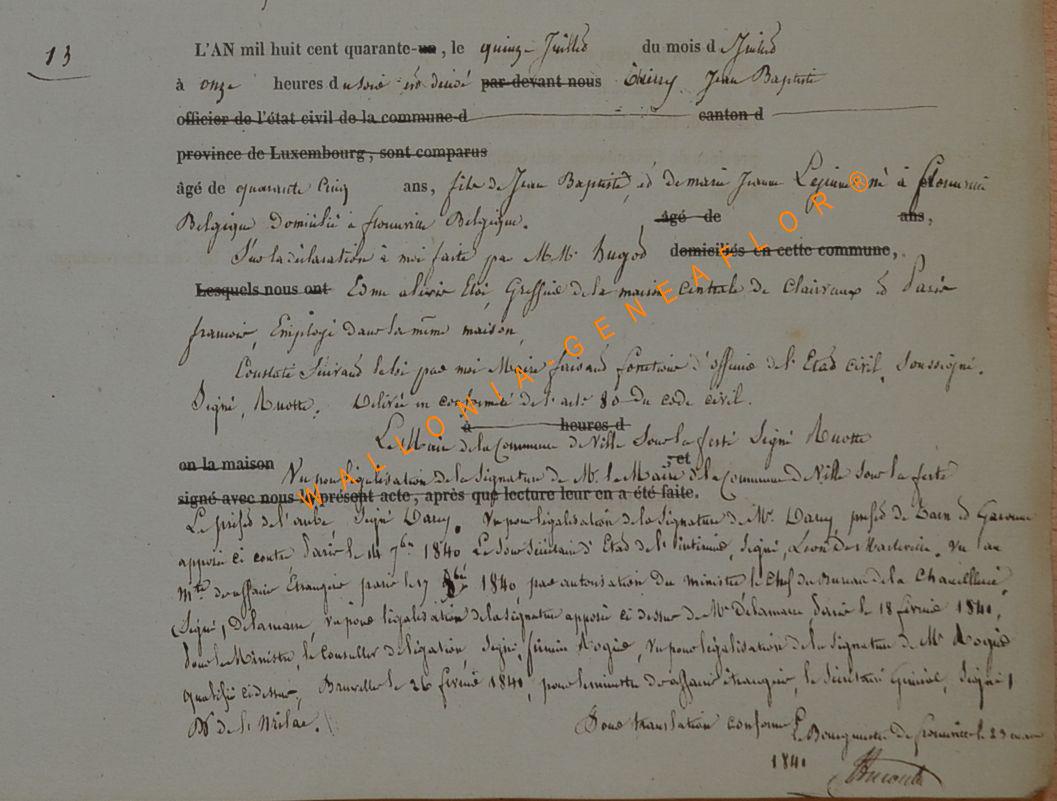 13
L'AN mil huit cent quarante-un, le quinze Juillet du mois d Juillet
à onze heures du soir est décédé par-devant nous Thirry Jean Baptiste
officier de l'état civil de la commune d canton d
province de Luxembourg, sont comparus
âgé de quarante Cinq ans, fils de Jean Baptiste, et de marie Jeanne né à florenville
Belgique Domicilié à florenville Belgique. âgé de ans,
Sur la déclaration à moi faite par M.M. Bugod domiciliés en cette commune,
Lesquels nous ont Edme Eloi, Greffier de la maison Centrale de Clairvaux et Paris
francois, Employé dans la même maison,
Constaté Suivant la loi par moi Maire faisant fonctions d'officier de l'Etat civil, Soussigné.
Signé, Ruotte. Délivré en conformité de l'acte 80 du code civil.
à heures d
Le Maire de la Commune de Ville Sous la ferté Signé Ruotte
en la maison ; et
Vu pour légalisation de la Signature de M. le Maire de la Commune de Ville Sous la ferté
signé avec nous le présent acte, après que lecture leur en a été faite.
Le préfet de l'aube Signé Darcy. Vu pour légalisation de la Signature de Mr. Darcy, préfet de
apposée ci contre Paris le 14 7bre 1840 Le Sous Secrétaire d'Etat de l'intérieur, Signé, Léon de Maleville. Vu au
mtre des affaires Etrangères paris le 17 1840 par autorisation du ministre le Chef du Bureau de la Chancellerie
(Signé, Delamarre, Vu pour légalisation de la signature apposée ci dessus de Mr Delamarre, Paris le 18 février 1841,
Pour le Ministre, le Conseiller de légation, Signé, firmin Rogier, Vu pour légalisation de la Signature de Mr Rogier
qualifié ci dessus, Bruxelles le 26 février 1841, pour le ministre des affaires étrangères, le Secrétaire Général, Signé,
Bn de
Pour translation conforme Le Bourgmestre de florenville le 23
1841
WALLONIA-GENEAFLOR®